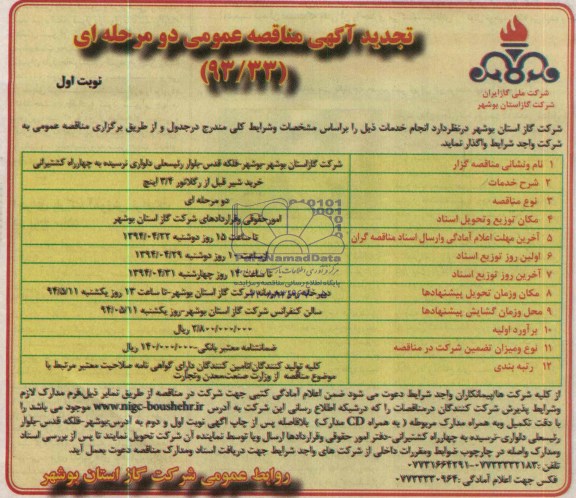 تجدید آگهی مناقصه عمومی دو مرحله ای
(۹۳/۳۳)
نوبت اول
شرکت ملی گاز ایران
شرکت گاز استان بوشهر
شرکت گاز استان بوشهر درنظردارد انجام خدمات ذیل را براساس مشخصات وشرایط کلی مندرج درجدول و از طریق برگزاری مناقصه عمومی به
شرکت واجد شرایط واگذار نماید.
۱ نام ونشانی مناقصه گزار شرکت گازاستان بوشهر-بوشهر-فلکه قدس-بلوار رئیسعلی دلواری نرسیده به چهارراه کشتیرانی
۲ شرح خدمات خرید شیر قبل از رگلاتور ۳/۴ اینچ
۳ نوع مناقصه دو مرحله ای
۴ مکان توزیع وتحویل اسناد امورحقوقی وقراردادهای شرکت گاز استان بوشهر
۵ آخرین مهلت اعلام آمادگی وارسال اسناد مناقصه گران تا ساعت ۱۵ روز دوشنبه ۱۳۹۴/۰۴/۲۲
۶ اولین روز توزیع اسناد ازساعت ۱۰ روز دوشنبه ۱۳۹۴/۰۴/۲۹
۷ آخرین روز توزیع اسناد تا ساعت ۱۴ روز چهارشنبه ۱۳۹۴/۰۴/۳۱
۸ مکان وزمان تحویل پیشنهادها شرکت گاز استان بوشهر-تا ساعت ۱۳ روز یکشنبه ۹۴/۵/۱۱
۹ محل وزمان گشایش پیشنهادها سالن کنفرانس شرکت گاز استان بوشهر-روز یکشنبه ۹۴/۰۵/۱۱
۱۰ برآورد اولیه ۲/۸۰۰/۰۰۰/۰۰۰ ریال
۱۱ نوع ومیزان تضمین شرکت در مناقصه ضمانتنامه معتبر بانکی-۱۴۰/۰۰۰/۰۰۰ ریال
۱۲ رتبه بندی کلیه تولید کنندگان/تامین کنندگان دارای گواهی نامه صلاحیت معتبر مرتبط با
موضوع مناقصه از وزارت صنعت،معدن وتجارت
ParsNamadData
پایگاه اطلاع رسانی مناقصه و مزایده
از کلیه شرکت ها/پیمانکاران واجد شرایط دعوت می شود ضمن اعلام آمادگی کتبی جهت شرکت در مناقصه از طریق نمابر ذیل،فرم مدارک لازم
وشرایط پذیرش شرکت کنندگان درمناقصات را که درشبکه اطلاع رسانی این شرکت به آدرس www.nigc-boushehr.ir موجود می باشد را
با دقت تکمیل وبه همراه مدارک مربوطه ( به همراه CD مدارک) بلافاصله پس از چاپ آگهی نوبت اول و دوم به آدرس:بوشهر-فلکه قدس-بلوار
رئیسعلی دلواری-نرسیده به چهارراه کشتیرانی-دفتر امور حقوقی وقراردادها ارسال ویا توسط نماینده آن شرکت تحویل نمایند تا پس از بررسی اسناد
ومدارک واصله در چارچوب ضوابط ومقررات داخلی از شرکت های واجد شرایط جهت دریافت اسناد ومدارک مناقصه دعوت بعمل آید.
تلفن :۰۷۷۳۳۳۳۲۱۸۳-۰۷۷۳۱۶۶۴۲۹۱
فکس جهت اعلام آمادگی :۰۷۷۳۳۳۳۰۹۶۴
روابط عمومی شرکت گاز استان بوشهر